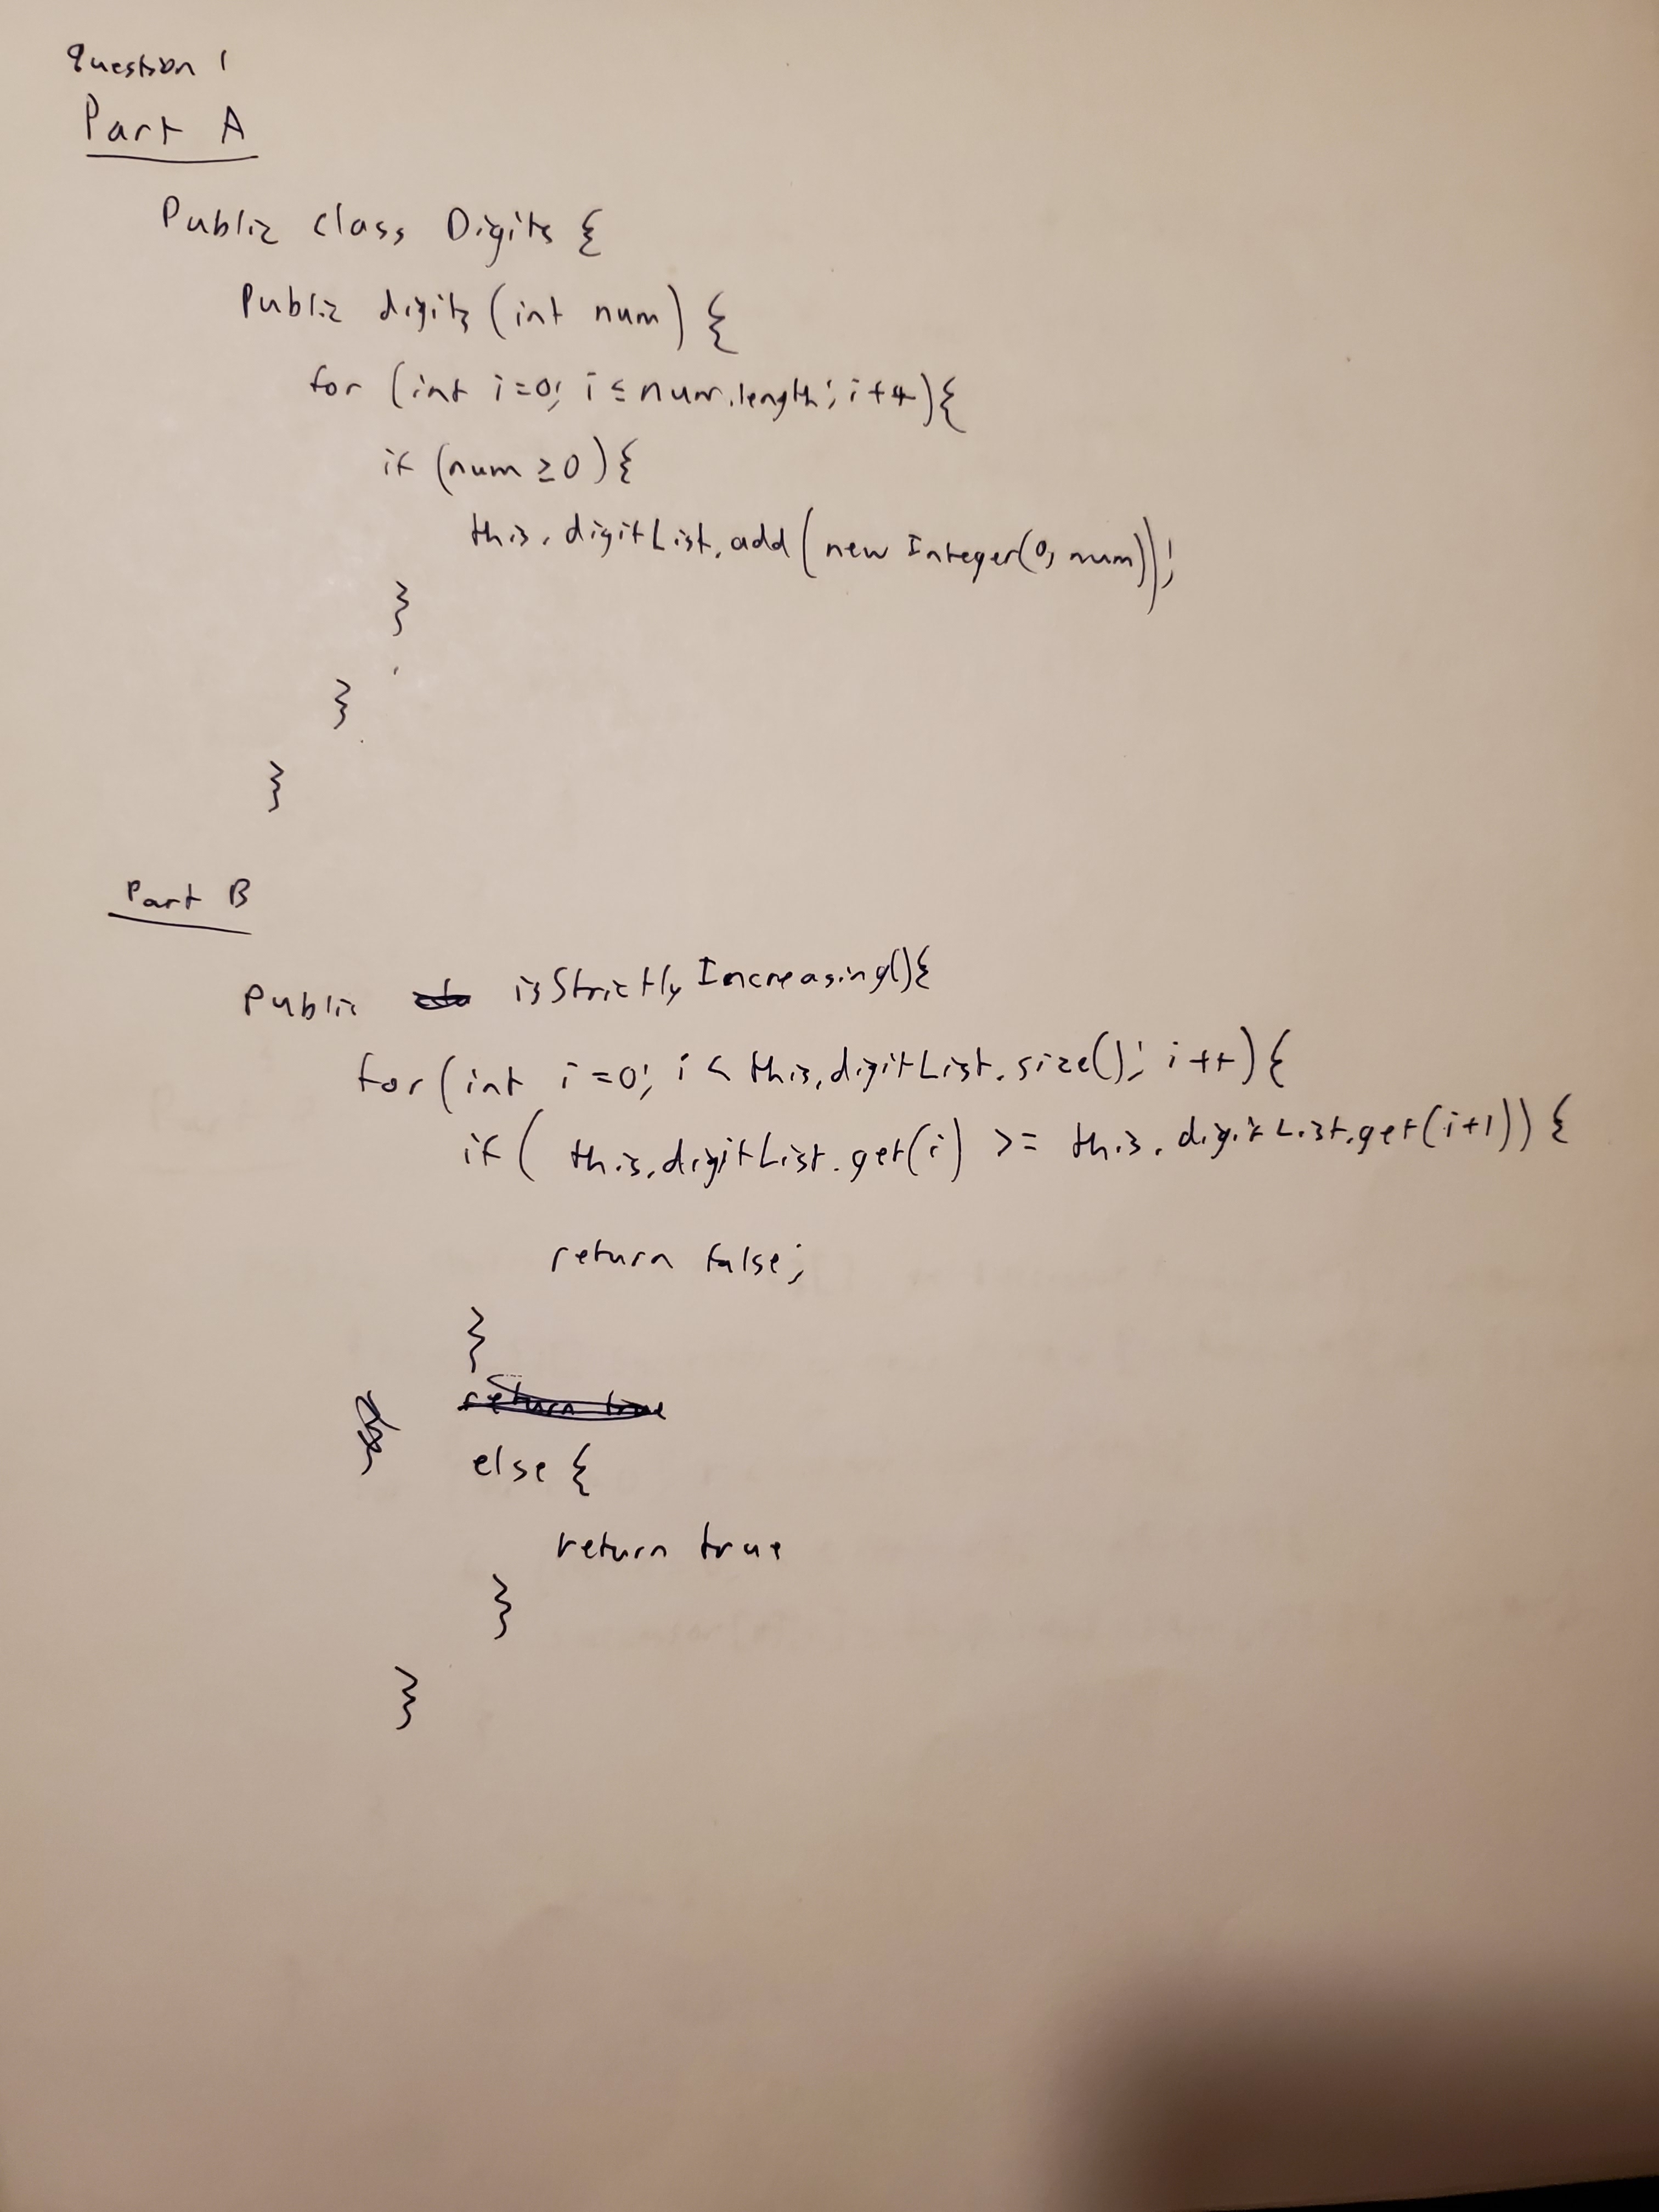 Question 1
Part A
Public class Digits {
Public digits (int num) {
for (int i=0; i ≤ num.length; i++){
if (num ≥ 0) {
this.digitList.add(new Integer(0, num));
}
}
}
Part B
Public isStrictlyIncreasing(){
for (int i=0; i < this.digitList.size(); i++) {
if ( this.digitList.get(i) >= this.digitList.get(i+1)) {
return false;
}
return true
else {
return true
}
}